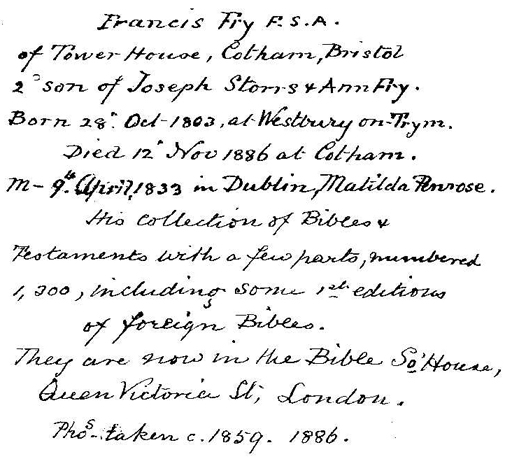 Francis Fry F.S.A.
of Tower House, Cotham, Bristol
2ᵈ son of Joseph Storrs & Ann Fry.
Born 28ᵗ. Oct-1803, at Westbury on-Trym.
Died 12ᵗ Nov 1886 at Cotham.
M- 9ᵗʰ April, 1833 in Dublin, Matilda Penrose.
His collection of Bibles &
Testaments with a few parts, numbered
1,300, including some 1ˢᵗ editions
of foreign Bibles.
They are now in the Bible Soʸ House,
Queen Victoria St; London.
Phoˢ- taken c. 1859. 1886.